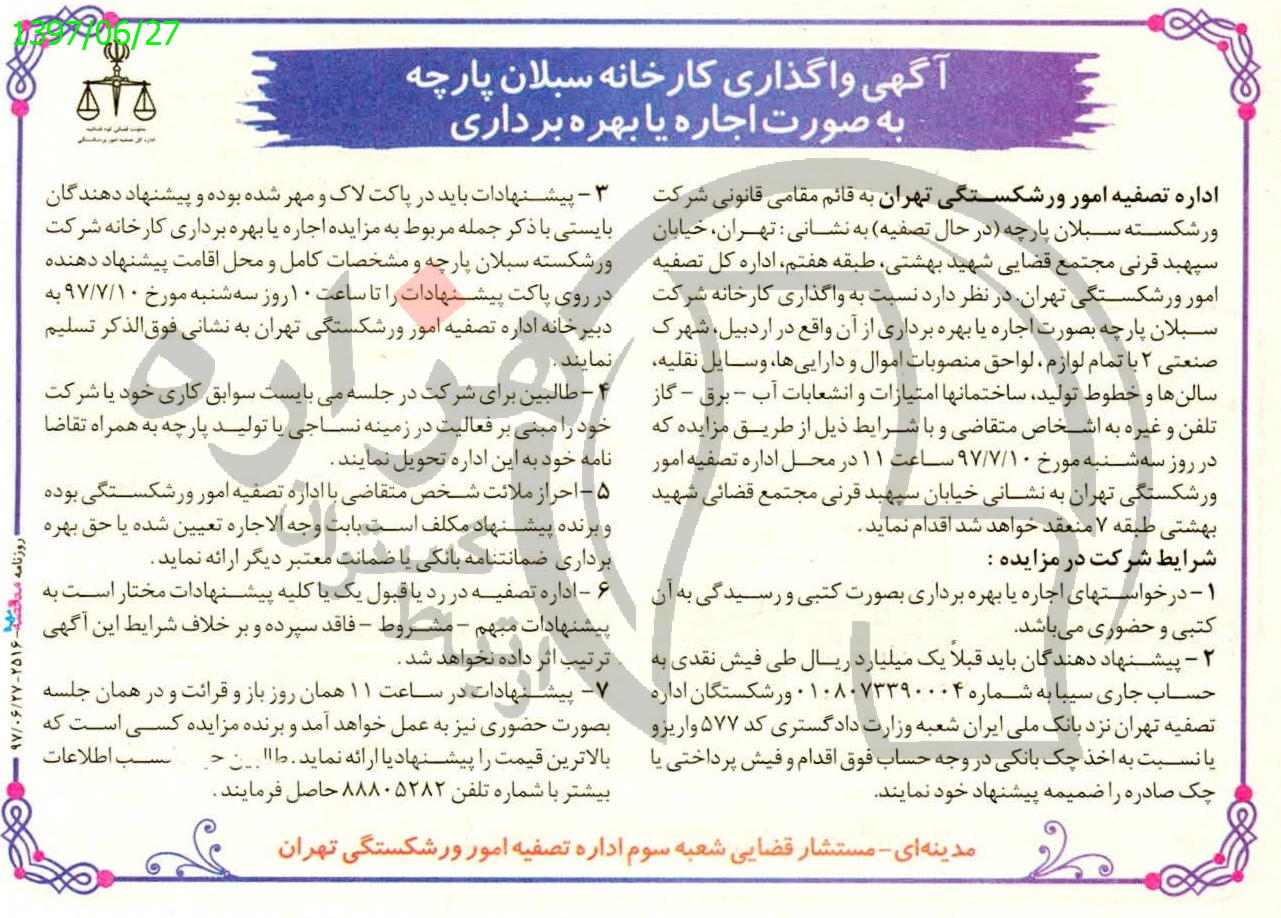 1397/06/27
معاونت قضائی قوه قضائیه
اداره کل تصفیه امور ورشکستگی
آگهی واگذاری کارخانه سبلان پارچه
به صورت اجاره یا بهره برداری
اداره تصفیه امور ورشکستگی تهران به قائم مقامی قانونی شرکت
ورشکسته سبلان پارچه (در حال تصفیه) به نشانی: تهران، خیابان
سپهبد قرنی مجتمع قضایی شهید بهشتی، طبقه هفتم، اداره کل تصفیه
امور ورشکستگی تهران. در نظر دارد نسبت به واگذاری کارخانه شرکت
سبلان پارچه بصورت اجاره یا بهره برداری از آن واقع در اردبیل، شهرک
صنعتی ۲ با تمام لوازم، لواحق منصوبات اموال و دارایی ها، وسایل نقلیه،
سالن ها و خطوط تولید، ساختمانها امتیازات و انشعابات آب – برق – گاز
تلفن و غیره به اشخاص متقاضی و با شرایط ذیل از طریق مزایده که
در روز سه‌شنبه مورخ ۹۷/۷/۱۰ ساعت ۱۱ در محل اداره تصفیه امور
ورشکستگی تهران به نشانی خیابان سپهبد قرنی مجتمع قضائی شهید
بهشتی طبقه ۷ منعقد خواهد شد اقدام نماید.
شرایط شرکت در مزایده :
۱ – درخواستهای اجاره یا بهره برداری بصورت کتبی و رسیدگی به آن
کتبی و حضوری می‌باشد.
۲ – پیشنهاد دهندگان باید قبلاً یک میلیارد ریال طی فیش نقدی به
حساب جاری سیبا به شماره ۰۱۰۸۰۷۳۳۹۰۰۰۴ ورشکستگان اداره
تصفیه تهران نزد بانک ملی ایران شعبه وزارت دادگستری کد ۵۷۷ واریز و
یا نسبت به اخذ چک بانکی در وجه حساب فوق اقدام و فیش پرداختی یا
چک صادره را ضمیمه پیشنهاد خود نمایند.
۳ – پیشنهادات باید در پاکت لاک و مهر شده بوده و پیشنهاد دهندگان
بایستی با ذکر جمله مربوط به مزایده اجاره یا بهره برداری کارخانه شرکت
ورشکسته سبلان پارچه و مشخصات کامل و محل اقامت پیشنهاد دهنده
در روی پاکت پیشنهادات را تا ساعت ۱۰ روز سه‌شنبه مورخ ۹۷/۷/۱۰ به
دبیرخانه اداره تصفیه امور ورشکستگی تهران به نشانی فوق‌الذکر تسلیم
نمایند .
۴ – طالبین برای شرکت در جلسه می بایست سوابق کاری خود یا شرکت
خود را مبنی بر فعالیت در زمینه نساجی یا تولید پارچه به همراه تقاضا
نامه خود به این اداره تحویل نمایند .
۵ – احراز ملائت شخص متقاضی با اداره تصفیه امور ورشکستگی بوده
و برنده پیشنهاد مکلف است بابت وجه الاجاره تعیین شده یا حق بهره
برداری ضمانتنامه بانکی یا ضمانت معتبر دیگر ارائه نماید .
۶ – اداره تصفیه در رد یا قبول یک یا کلیه پیشنهادات مختار است به
پیشنهادات مبهم – مشروط – فاقد سپرده و بر خلاف شرایط این آگهی
ترتیب اثر داده نخواهد شد .
۷ – پیشنهادات در ساعت ۱۱ همان روز باز و قرائت و در همان جلسه
بصورت حضوری نیز به عمل خواهد آمد و برنده مزایده کسی است که
بالاترین قیمت را پیشنهاد یا ارائه نماید . اطلاعات
بیشتر با شماره تلفن ۸۸۸۰۵۲۸۲ حاصل فرمایند .
مدینه‌ای – مستشار قضایی شعبه سوم اداره تصفیه امور ورشکستگی تهران
روزنامه مناقصه – ۲۵۱۶ – ۹۷/۰۶/۲۷
هزاره